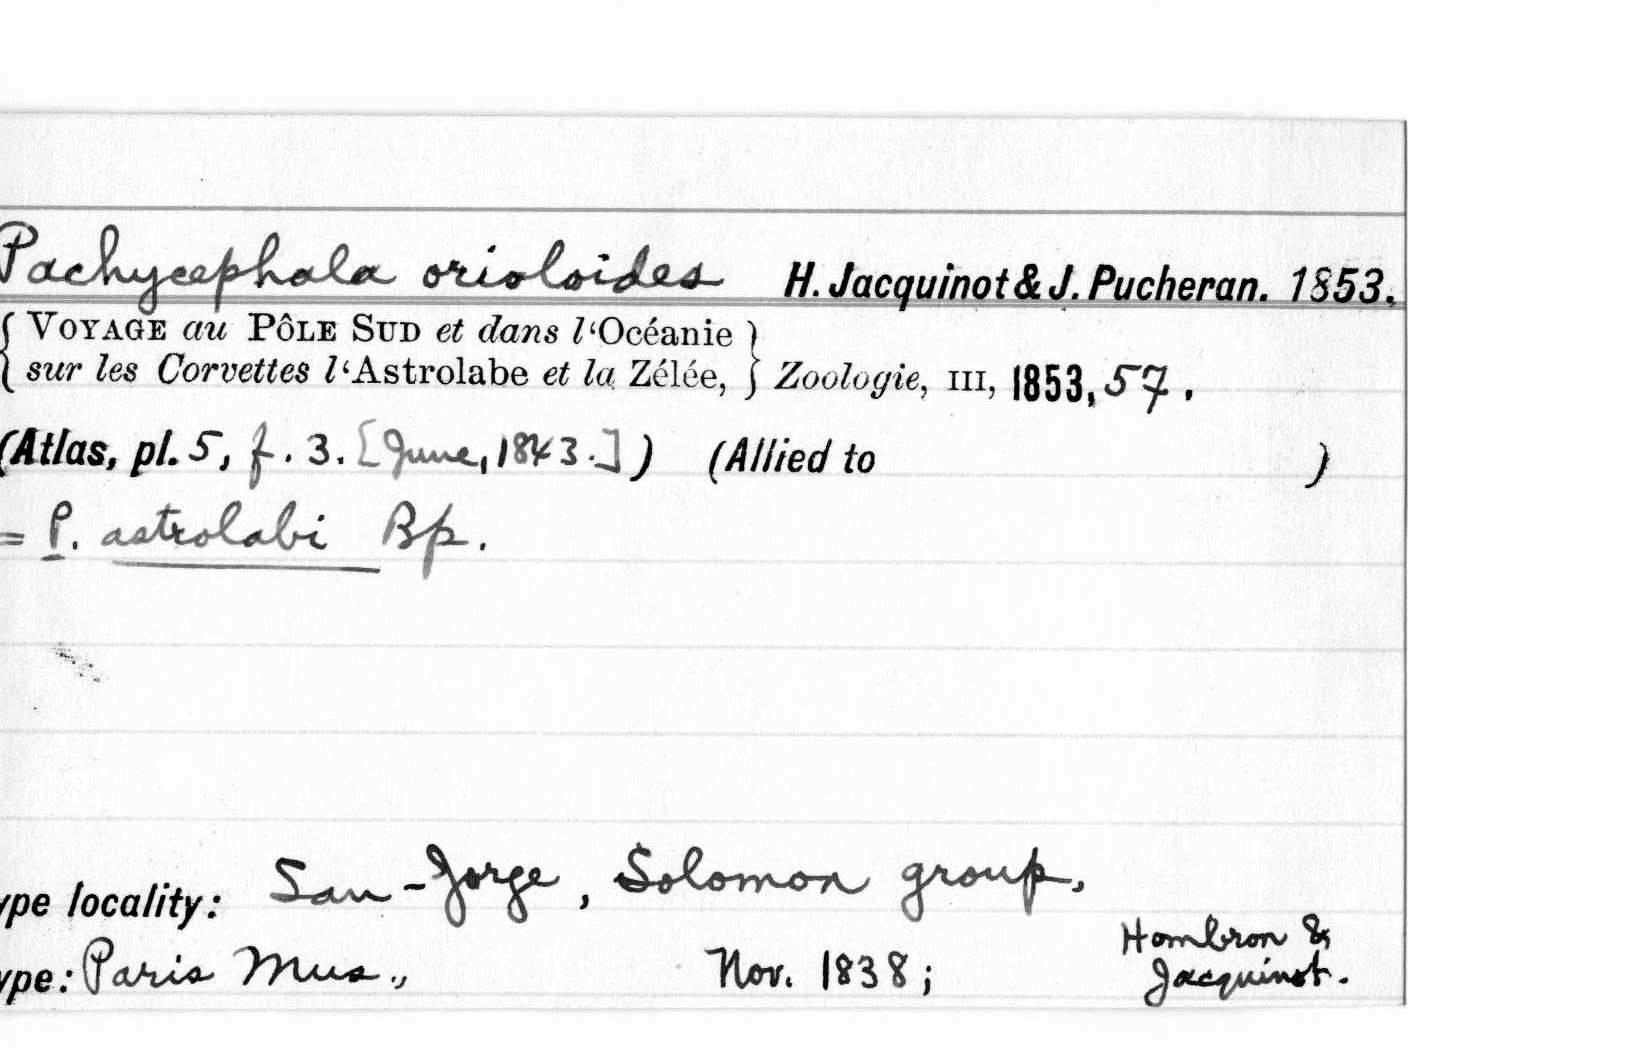 Pachycephala orioloides H. Jacquinot & J. Pucheran. 1853.
{ VOYAGE au PôLE SUD et dans l‘Océanie }
{ sur les Corvettes l‘Astrolabe et la Zélée, } Zoologie, III, 1853, 57.
(Atlas, pl. 5, f. 3. [June, 1843.]) (Allied to )
= P. astrolabi Bp.
ype locality: San-Jorge, Solomon group.
ype: Paris Mus., Nov. 1838; Hombron &
Jacquinot.